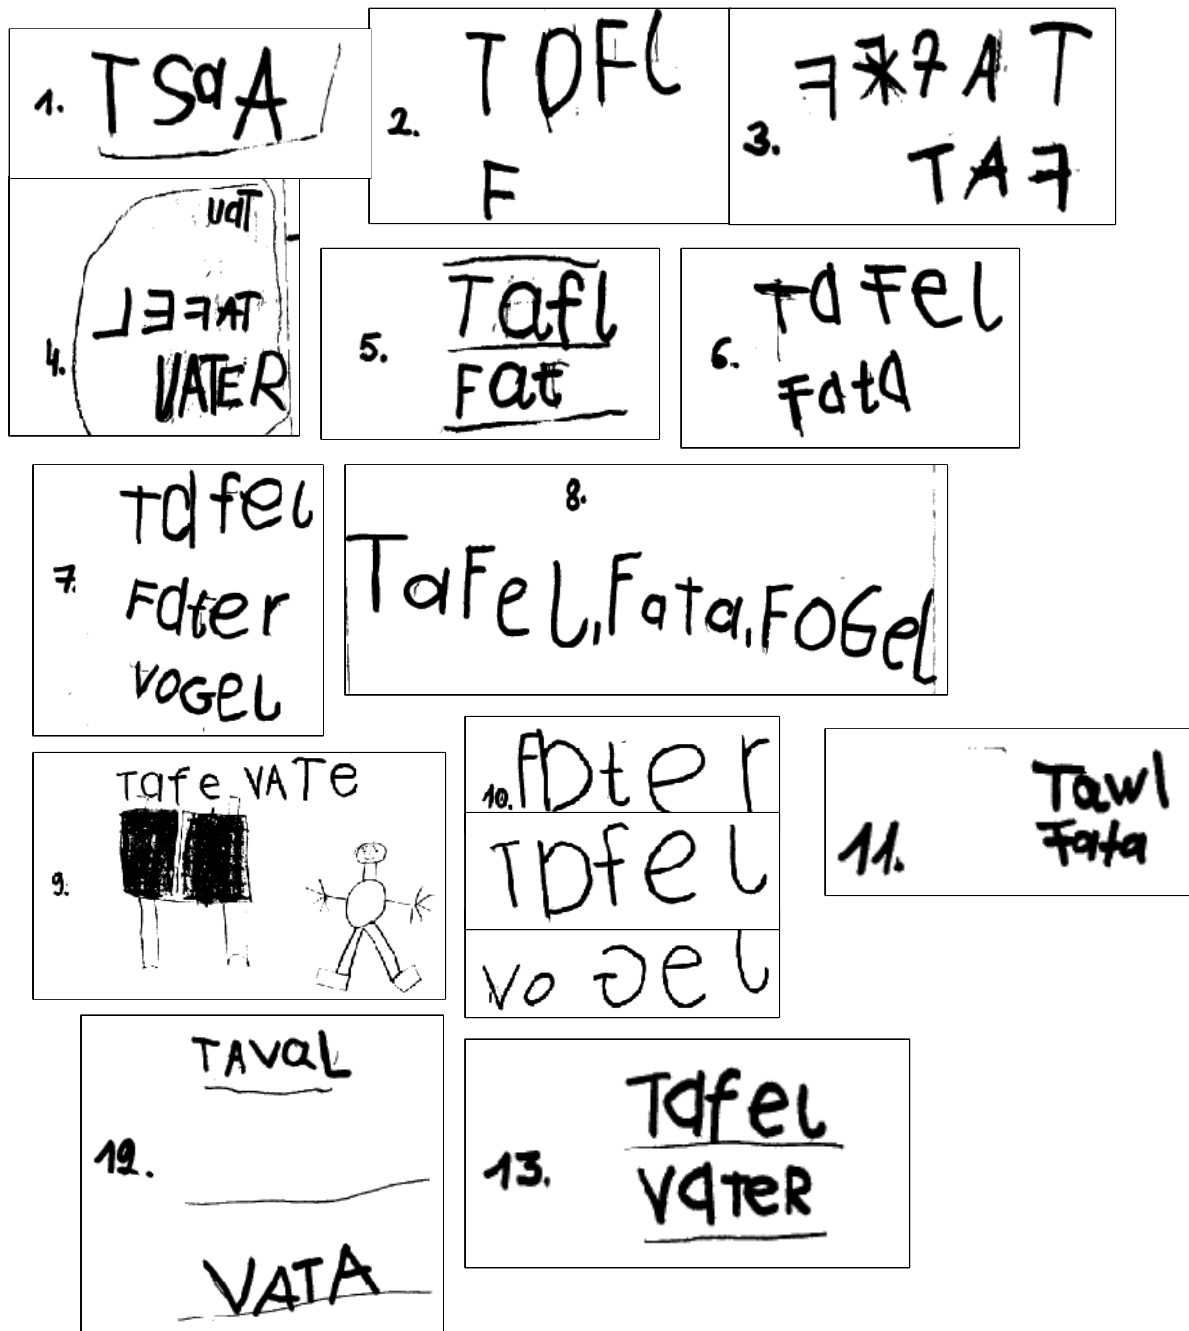 1. TSaA
2. TOFL
F
3. F*FAT
TAF
UaT
LEFAT
4. VATER
5. Tafl
Fat
6. TaFel
Fata
Tafel
7. Fater
VOGEL
8.
TaFeL, Fata, FOGel
Tafe VATe
9.
10. FDter
TDfel
VoGel
11. Tawl
Fata
TAVaL
12.
VATA
13. Tafel
VateR